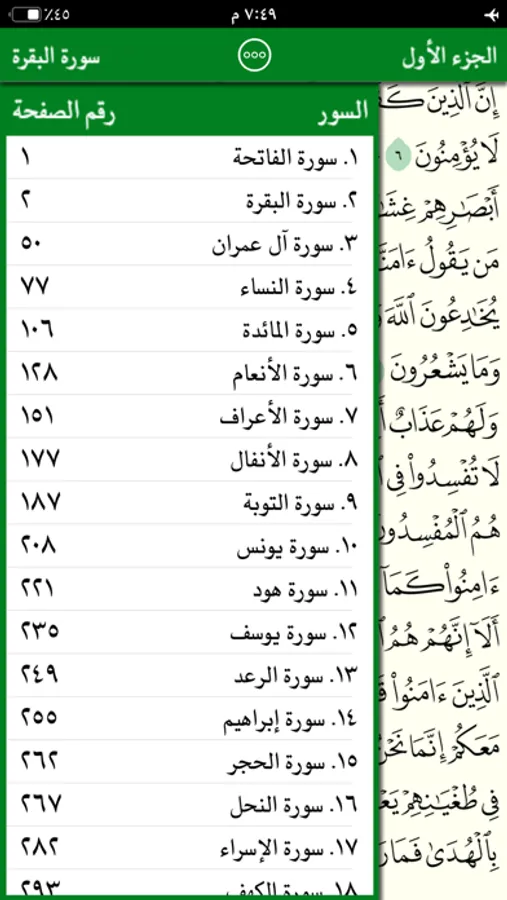 ٧:٤٩ م
٪٤٥
الجزء الأول
سورة البقرة
السور
رقم الصفحة
١. سورة الفاتحة ١
٢. سورة البقرة ٢
٣. سورة آل عمران ٥٠
٤. سورة النساء ٧٧
٥. سورة المائدة ١٠٦
٦. سورة الأنعام ١٢٨
٧. سورة الأعراف ١٥١
٨. سورة الأنفال ١٧٧
٩. سورة التوبة ١٨٧
١٠. سورة يونس ٢٠٨
١١. سورة هود ٢٢١
١٢. سورة يوسف ٢٣٥
١٣. سورة الرعد ٢٤٩
١٤. سورة إبراهيم ٢٥٥
١٥. سورة الحجر ٢٦٢
١٦. سورة النحل ٢٦٧
١٧. سورة الإسراء ٢٨٢
١٨. سورة الكهف ٢٩٣
إِنَّ ٱلَّذِينَ
لَا يُؤْمِنُونَ ٦
أَبْصَٰرِهِمْ
مَن يَقُولُ ءَامَنَّا
يُخَٰدِعُونَ ٱللَّهَ
وَمَا يَشْعُرُونَ
وَلَهُمْ عَذَابٌ
لَا تُفْسِدُوا۟ فِى
هُمُ ٱلْمُفْسِدُونَ
ءَامِنُوا۟ كَمَآ
أَلَآ إِنَّهُمْ هُمُ
ٱلَّذِينَ ءَامَنُوا۟
مَعَكُمْ إِنَّمَا نَحْنُ
فِى طُغْيَٰنِهِمْ
بِٱلْهُدَىٰ فَمَا